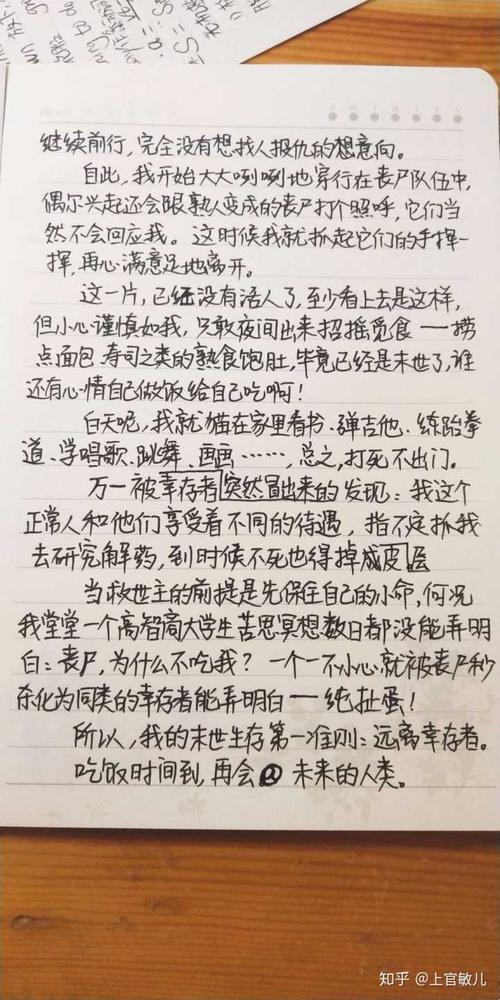 继续前行，完全没有想找人报仇的想意向。
自此，我开始大大咧咧地穿行在丧尸队伍中，
偶尔兴起还会跟熟人变成的丧尸打个照呼，它们当
然不会回应我。这时候我就抓起它们的手挥一
挥，再心满意足地离开。
这一片，已经没有活人了，至少看上去是这样，
但小心谨慎如我，只敢夜间出来招摇觅食——捞
点面包 寿司之类的熟食饱肚，毕竟已经是末世了，谁
还有心情自己做饭给自己吃啊！
白天呢，我就猫在家里看书、弹吉他、练跆拳
道、学唱歌、跳舞、画画……，总之，打死不出门。
万一被幸存者突然冒出来的发现：我这个
正常人和他们享受着不同的待遇，指不定抓我
去研究解药，到时候不死也得掉成皮
当救世主的前提是先保住自己的小命，何况
我堂堂一个高智商大学生苦思冥想数日都没能弄明
白：丧尸，为什么不吃我？一个一不小心就被丧尸秒
杀化为同类的幸存者能弄明白——纯扯蛋！
所以，我的末世生存第一准则：远离幸存者。
吃饭时间到，再会 未来的人类。
知乎 @上官敏儿